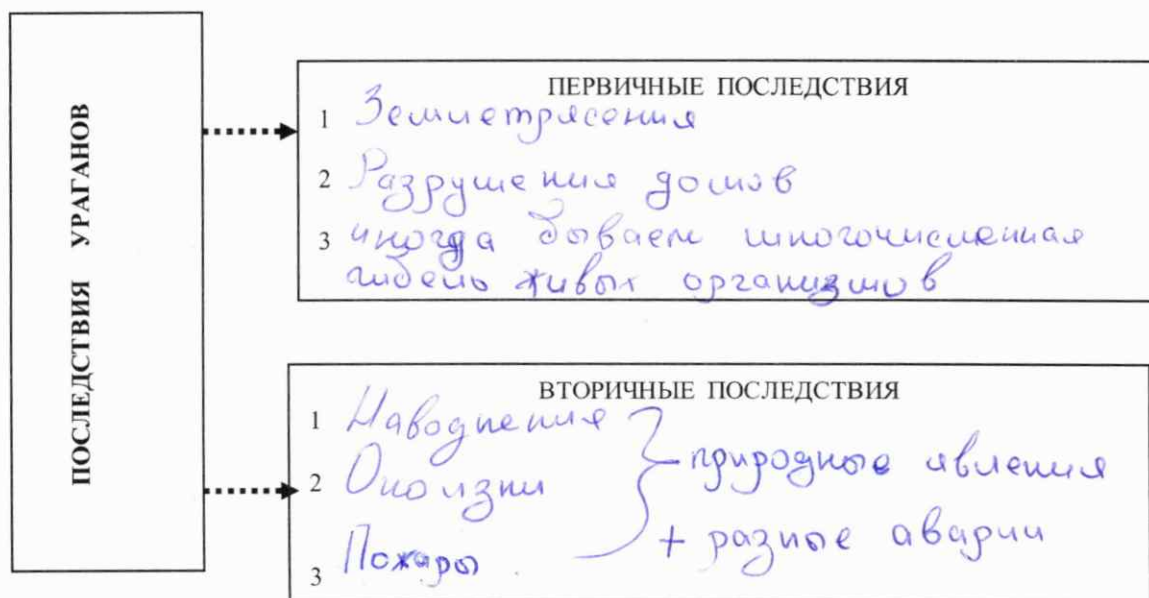 ПОСЛЕДСТВИЯ УРАГАНОВ
ПЕРВИЧНЫЕ ПОСЛЕДСТВИЯ
1 Землетрясения
2 Разрушения домов
3 иногда бывает многочисленная
гибель живых организмов
ВТОРИЧНЫЕ ПОСЛЕДСТВИЯ
1 Наводнения
2 Оползни
природные явления
3 Пожары
+ разные аварии